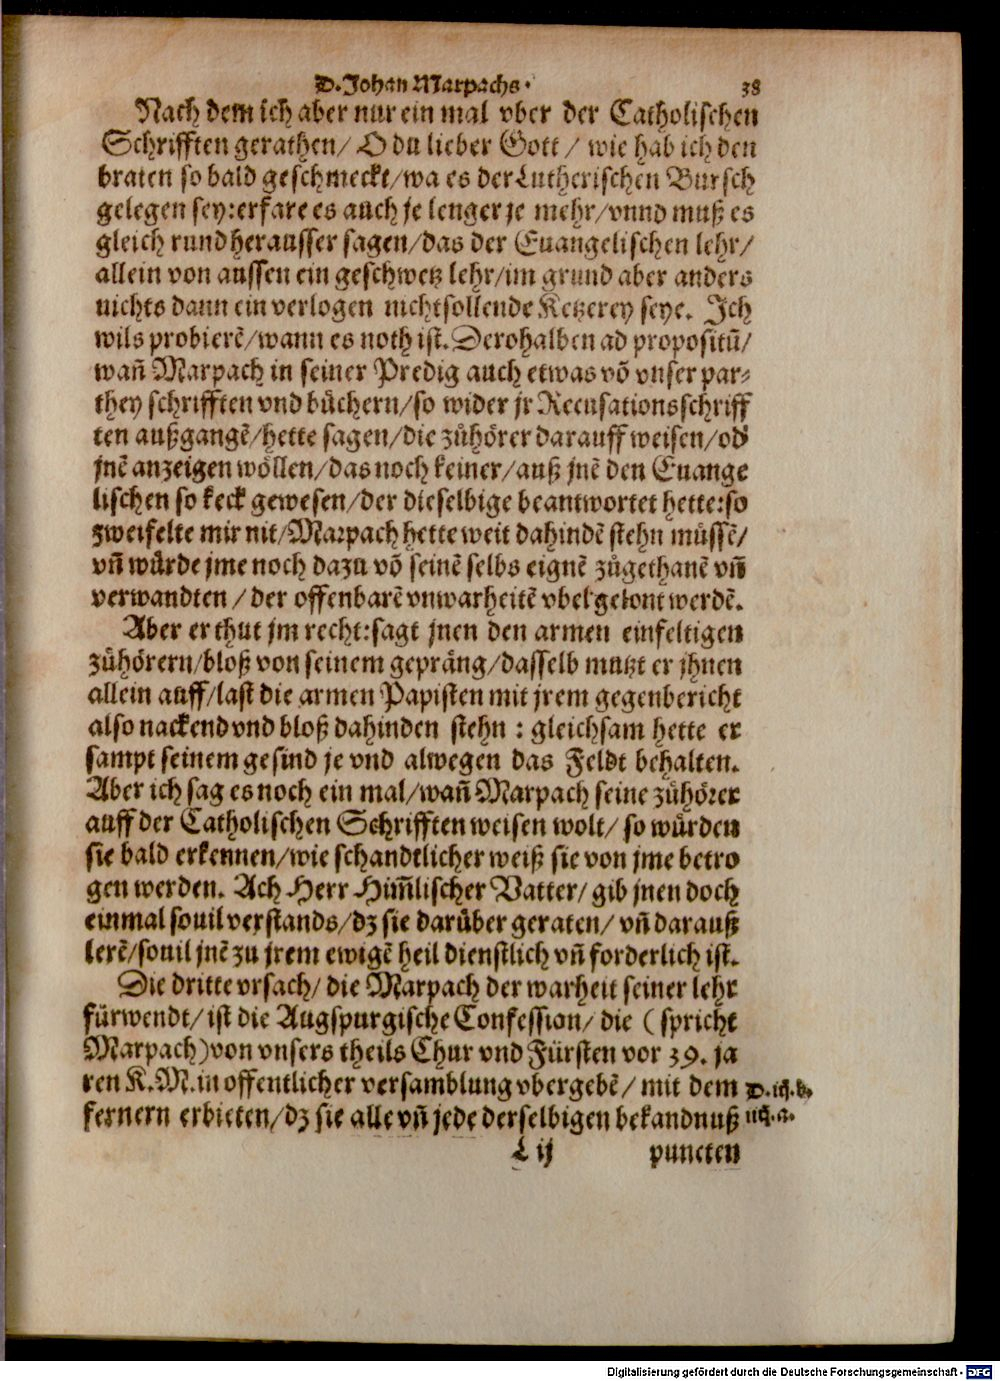 D. Johan Marpachs. 38
Nach dem ich aber nur ein mal vber der Catholischen
Schrifften gerathen/ O du lieber Gott/ wie hab ich den
braten so bald geschmeckt/wa es der Lutherischen Bursch
gelegen sey: erfare es auch je lenger je mehr/vnnd muß es
gleich rund herausser sagen/das der Euangelischen lehr/
allein von aussen ein geschwetz lehr/im grund aber anders
nichts dann ein verlogen nichtsollende Ketzerey seye. Ich
wils probierẽ/wann es noth ist. Derohalben ad propositũ/
wañ Marpach in seiner Predig auch etwas võ vnser par-
they schrifften vnd bůchern/so wider jr Recusationsschriff
ten außgangẽ/hette sagen/die zůhörer darauff weisen/od'
jnẽ anzeigen wöllen/das noch keiner/auß jnẽ den Euange
lischen so keck gewesen/der dieselbige beantwortet hette:so
zweifelte mir nit/Marpach hette weit dahindẽ stehn můssẽ/
vñ wůrde jme noch dazu võ seinẽ selbs eignẽ zůgethanẽ vñ
verwandten/ der offenbarẽ vnwarheitẽ vbel gelont werdẽ.
Aber er thut jm recht:sagt jnen den armen einfeltigen
zůhörern/bloß von seinem gepräng/dasselb mutzt er jhnen
allein auff/last die armen Papisten mit jrem gegenbericht
also nackend vnd bloß dahinden stehn : gleichsam hette er
sampt seinem gesind je vnd alwegen das Feldt behalten.
Aber ich sag es noch ein mal/wañ Marpach seine zůhörer
auff der Catholischen Schrifften weisen wolt/ so wůrden
sie bald erkennen/wie schandtlicher weiß sie von jme betro
gen werden. Ach Herr Him̃lischer Vatter/ gib jnen doch
einmal souil verstands/dz sie darůber geraten/ vñ darauß
lerẽ/souil jnẽ zu jrem ewigẽ heil dienstlich vñ forderlich ist.
Die dritte vrsach/ die Marpach der warheit seiner lehr
fürwendt/ist die Augspurgische Confession/ die ( spricht
Marpach)von vnsers theils Chur vnd Fürsten vor 39. ja
ren K.M. in offentlicher versamblung vbergebẽ/ mit dem D.iij.b.
fernern erbieten/dz sie alle vñ jede derselbigen bekandnuß iiij.a.
L ij puncten
Digitalisierung gefördert durch die Deutsche Forschungsgemeinschaft · DFG